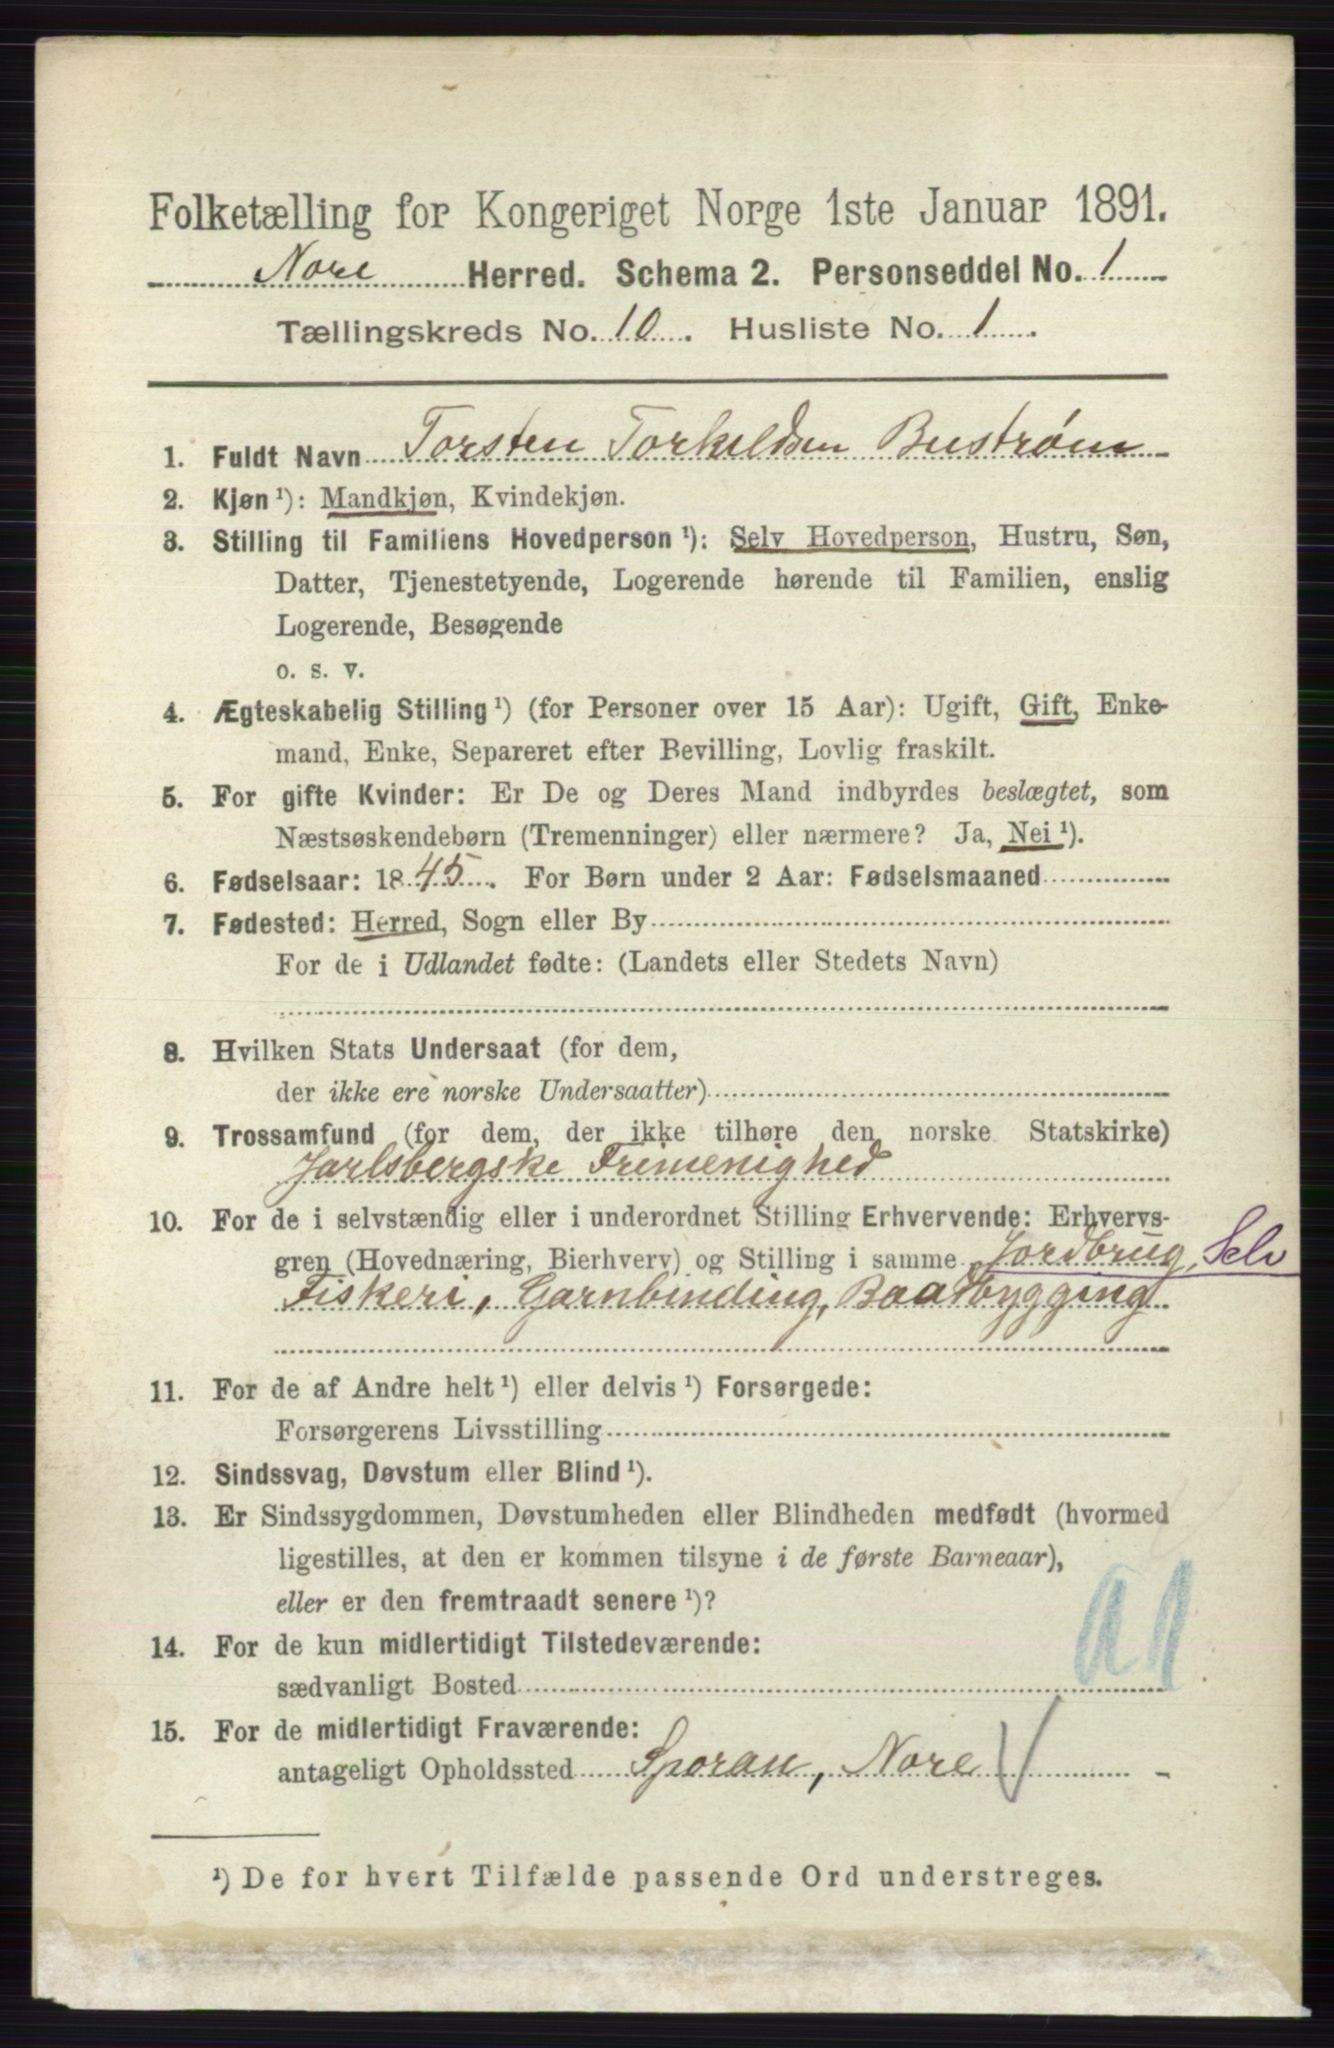 Folketælling for Kongeriget Norge 1ste Januar 1891.
Nore Herred. Schema 2. Personseddel No. 1
Tællingskreds No. 10. Husliste No. 1.
1. Fuldt Navn Torsten Torkildsen Bustrøm
2. Kjøn ¹): Mandkjøn, Kvindekjøn.
3. Stilling til Familiens Hovedperson ¹): Selv Hovedperson, Hustru, Søn,
Datter, Tjenestetyende, Logerende hørende til Familien, enslig
Logerende, Besøgende
o. s. v.
4. Ægteskabelig Stilling ¹) (for Personer over 15 Aar): Ugift, Gift, Enke-
mand, Enke, Separeret efter Bevilling, Lovlig fraskilt.
5. For gifte Kvinder: Er De og Deres Mand indbyrdes beslægtet, som
Næstsøskendebørn (Tremenninger) eller nærmere? Ja, Nei ¹).
6. Fødselsaar: 1845. For Børn under 2 Aar: Fødselsmaaned
7. Fødested: Herred, Sogn eller By
For de i Udlandet fødte: (Landets eller Stedets Navn)
8. Hvilken Stats Undersaat (for dem,
der ikke ere norske Undersaatter)
9. Trossamfund (for dem, der ikke tilhøre den norske Statskirke)
Jarlsbergske Frimenighed
10. For de i selvstændig eller i underordnet Stilling Erhvervende: Erhvervs-
gren (Hovednæring, Bierhverv) og Stilling i samme Jordbrug, Selv
Fiskeri, Garnbinding, Baadbygging
11. For de af Andre helt ¹) eller delvis ¹) Forsørgede:
Forsørgerens Livsstilling
12. Sindssvag, Døvstum eller Blind ¹).
13. Er Sindssygdommen, Døvstumheden eller Blindheden medfødt (hvormed
ligestilles, at den er kommen tilsyne i de første Barneaar),
eller er den fremtraadt senere ¹)?
14. For de kun midlertidigt Tilstedeværende:
sædvanligt Bosted
15. For de midlertidigt Fraværende:
antageligt Opholdssted Sporan, Nore
¹) De for hvert Tilfælde passende Ord understreges.